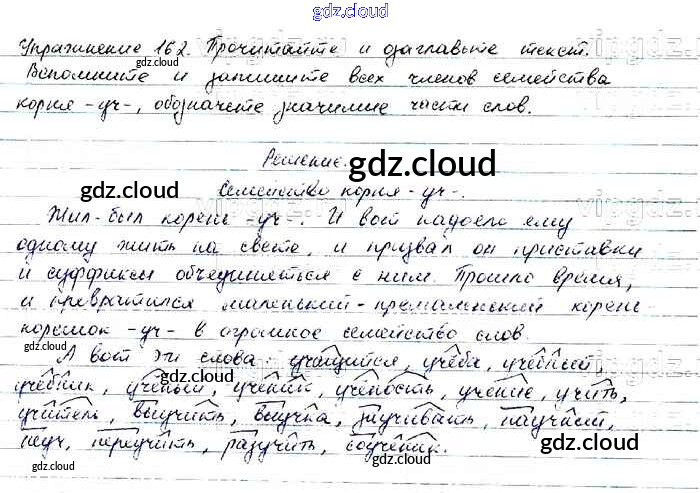 gdz.cloud
Упражнение 162. Прочитайте и озаглавьте текст.
Вспомните и запишите всех членов семейства
корня -уч-, обозначьте значимые части слов.
Решение.
Семейство корня -уч-.
Жил-был корень -уч-. И вот надоело ему
одному жить на свете, и призвал он приставки
и суффиксы объединяться с ним. Прошло время,
и превратился маленький-премаленький корень-
корешок -уч- в огромное семейство слов.
А вот эти слова: учащийся, учёба, учебный,
учебник, учёный, ученик, учёность, учение, учить,
учитель, выучить, выучка, заучивать, научный,
неуч, переучить, разучить, соученик.
gdz.cloud
gdz.cloud
gdz.cloud
gdz.cloud
gdz.cloud
gdz.cloud
gdz.cloud
gdz.cloud
gdz.cloud
gdz.cloud
gdz.cloud